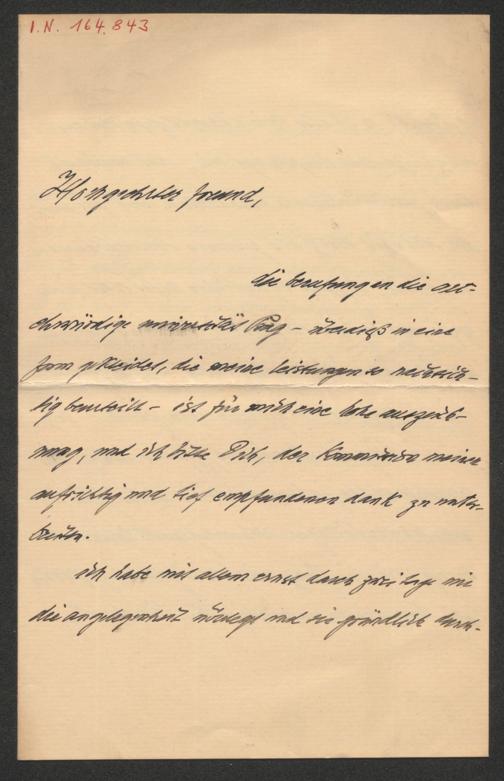 I.N. 164.843
Hochgeehrter freund,
die berufung an die alt-
ehrwürdige universität Prag – überdieß in eine
form gekleidet, die meine leistungen so nachsich-
tig beurteilt – ist für mich eine hohe auszeich-
nung, und ich bitte Dich, der Kommission meinen
aufrichtig und tief empfundenen dank zu unter-
breiten.
ich habe mit allem ernst durch zwei tage mir
die angelegenheit überlegt und sie gründlich durch-